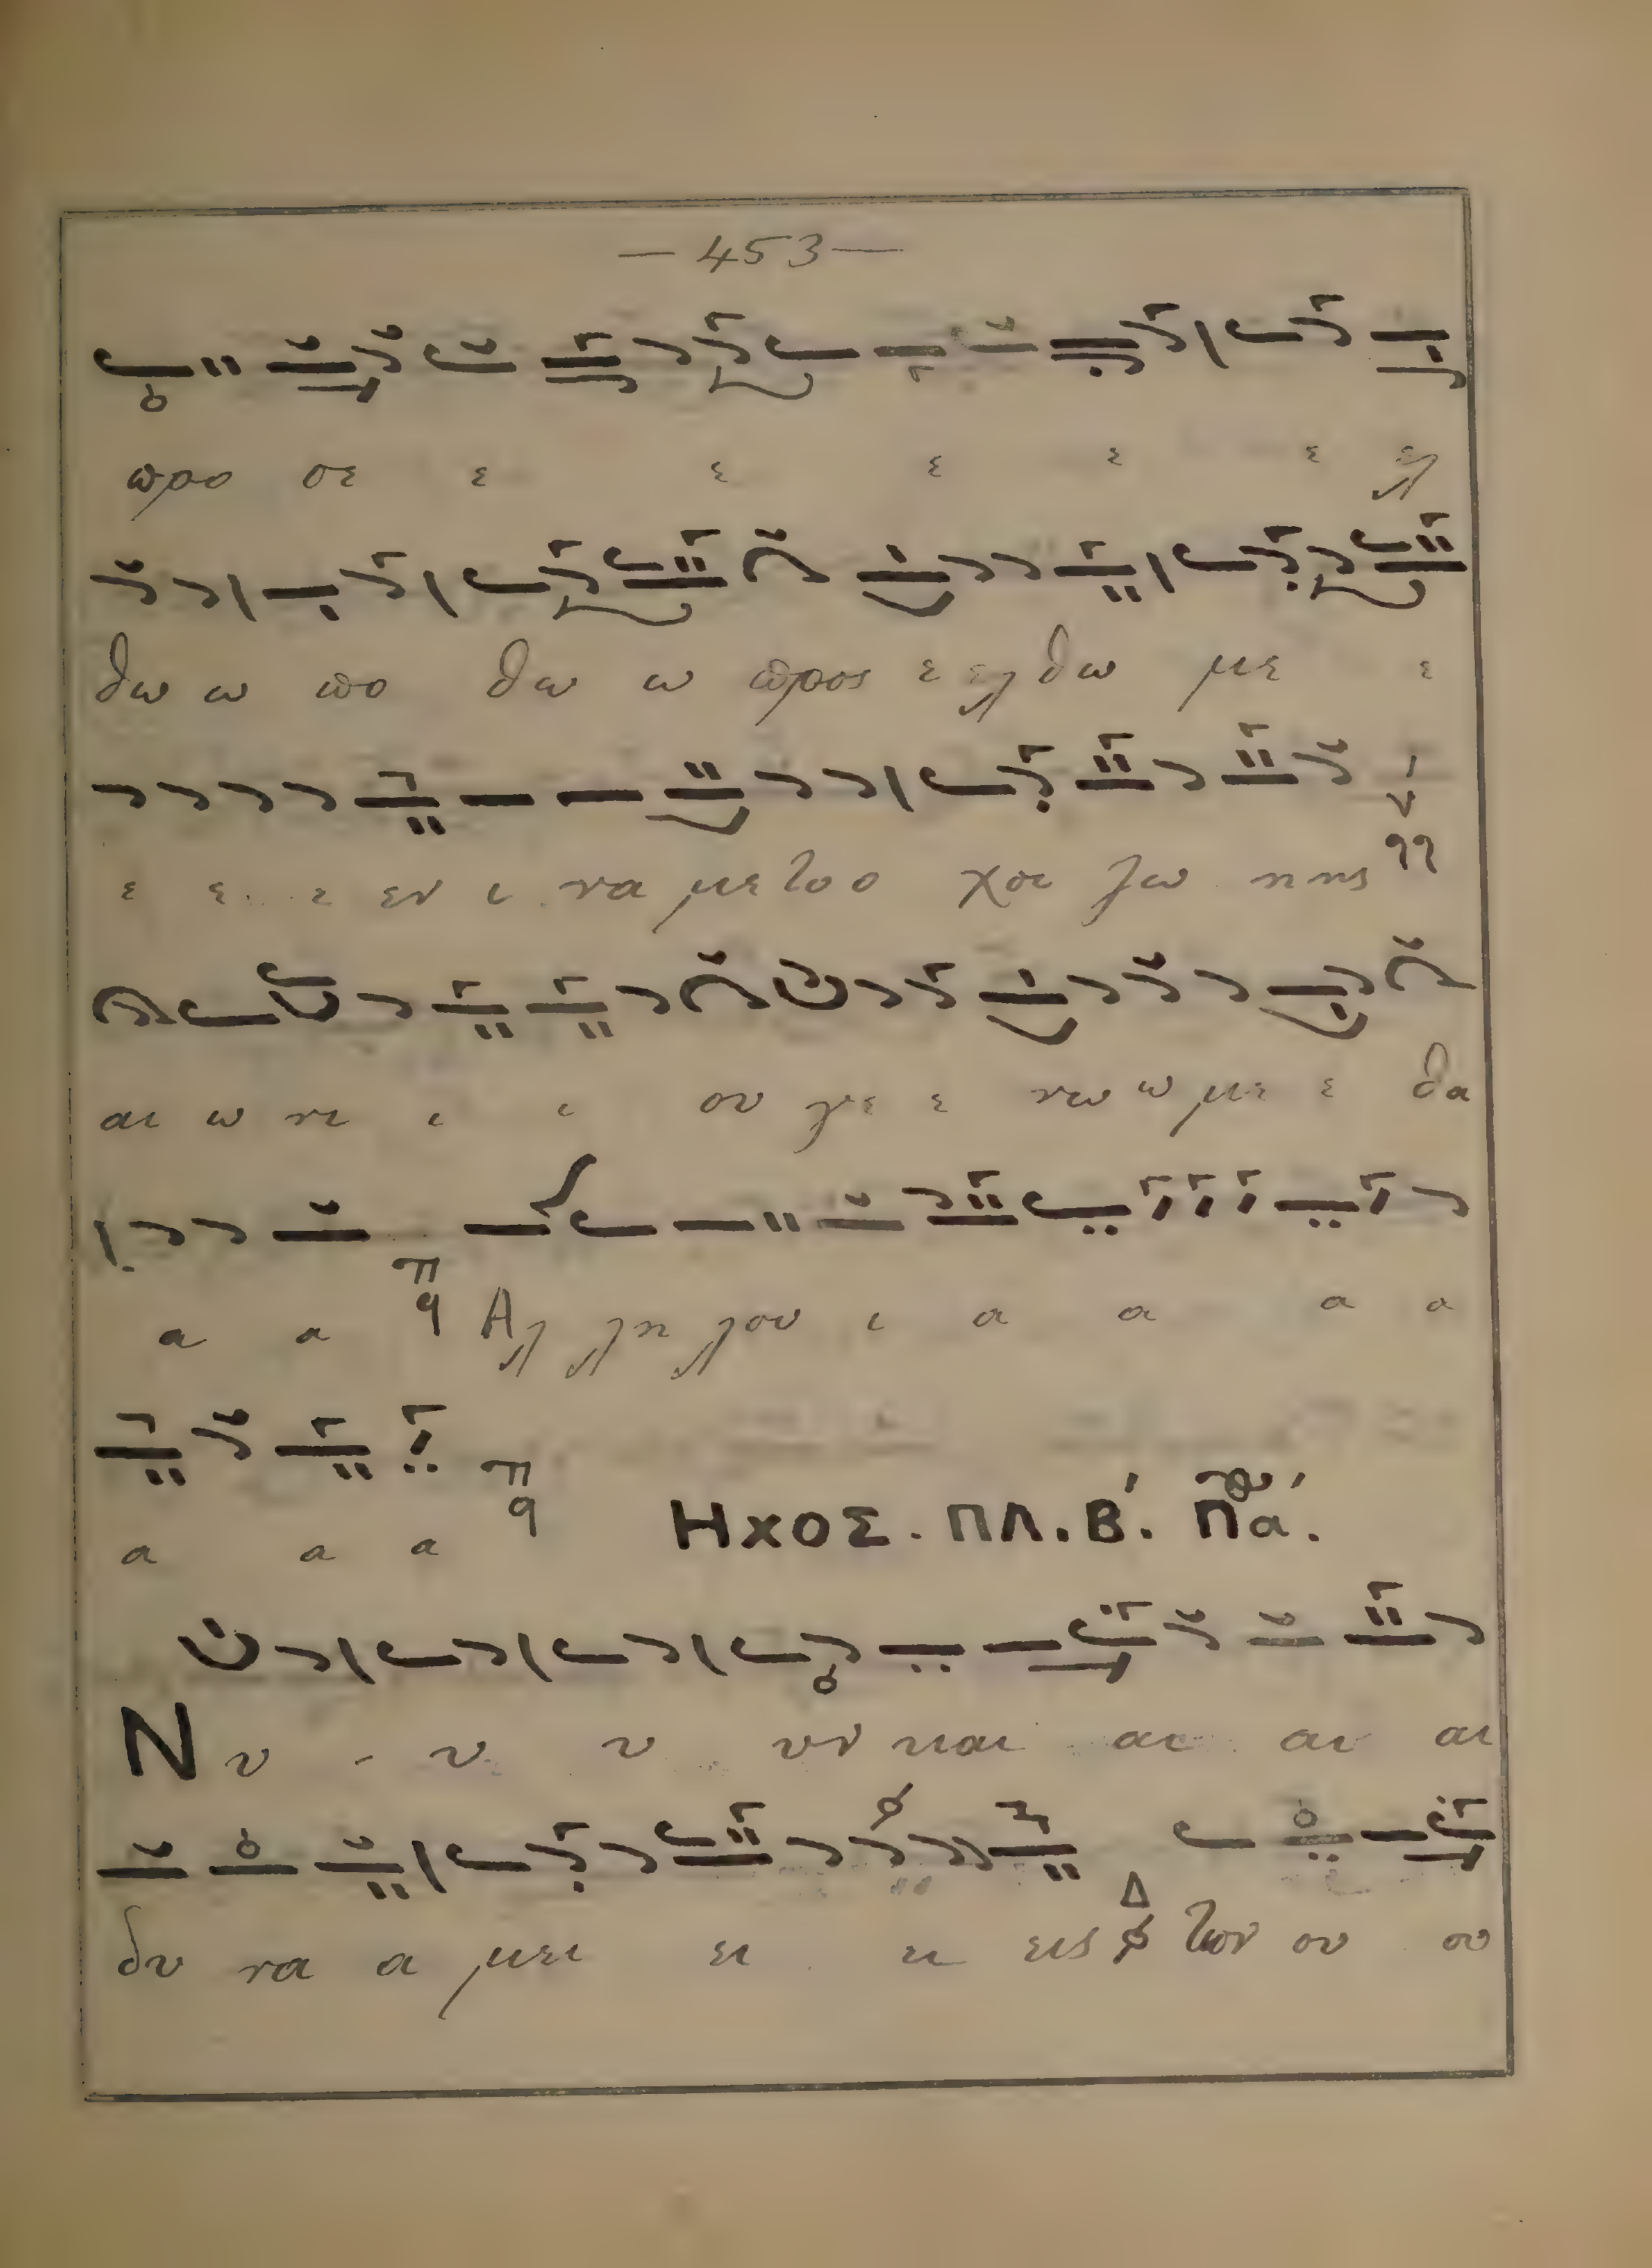 — 453 —
προ σε ε ε ε ε ε ελ
θω ω πο θω ω προς ε ελ θω με ε
ε ε ε εν ι να με το ο χοι ζω η ης
αι ω νι ι ι ου γε ε νω ω με ε θα
α α π q Αλ λη λου ι α α α α
α α α π q ΗΧΟΣ. ΠΛ. Β΄. Πα΄.
Ν υ υ υ υν και αι αι αι
δυ να α μει ει ει εις Δ των ου ου